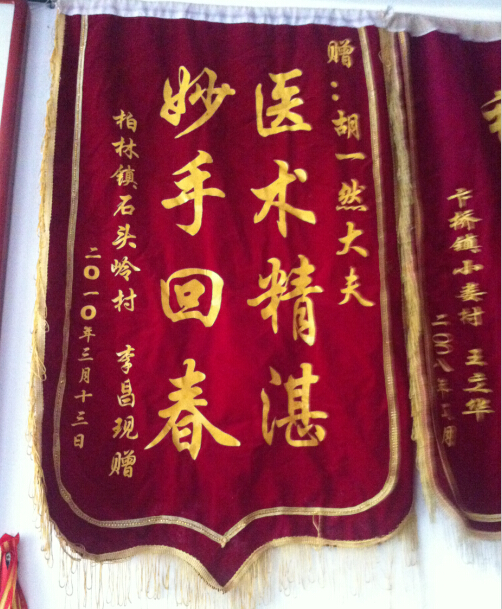 赠：胡一然大夫
医术精湛
妙手回春
柏林镇石头岭村 李昌现赠
二〇一〇年三月十三日
卞桥镇小娄村 王立华